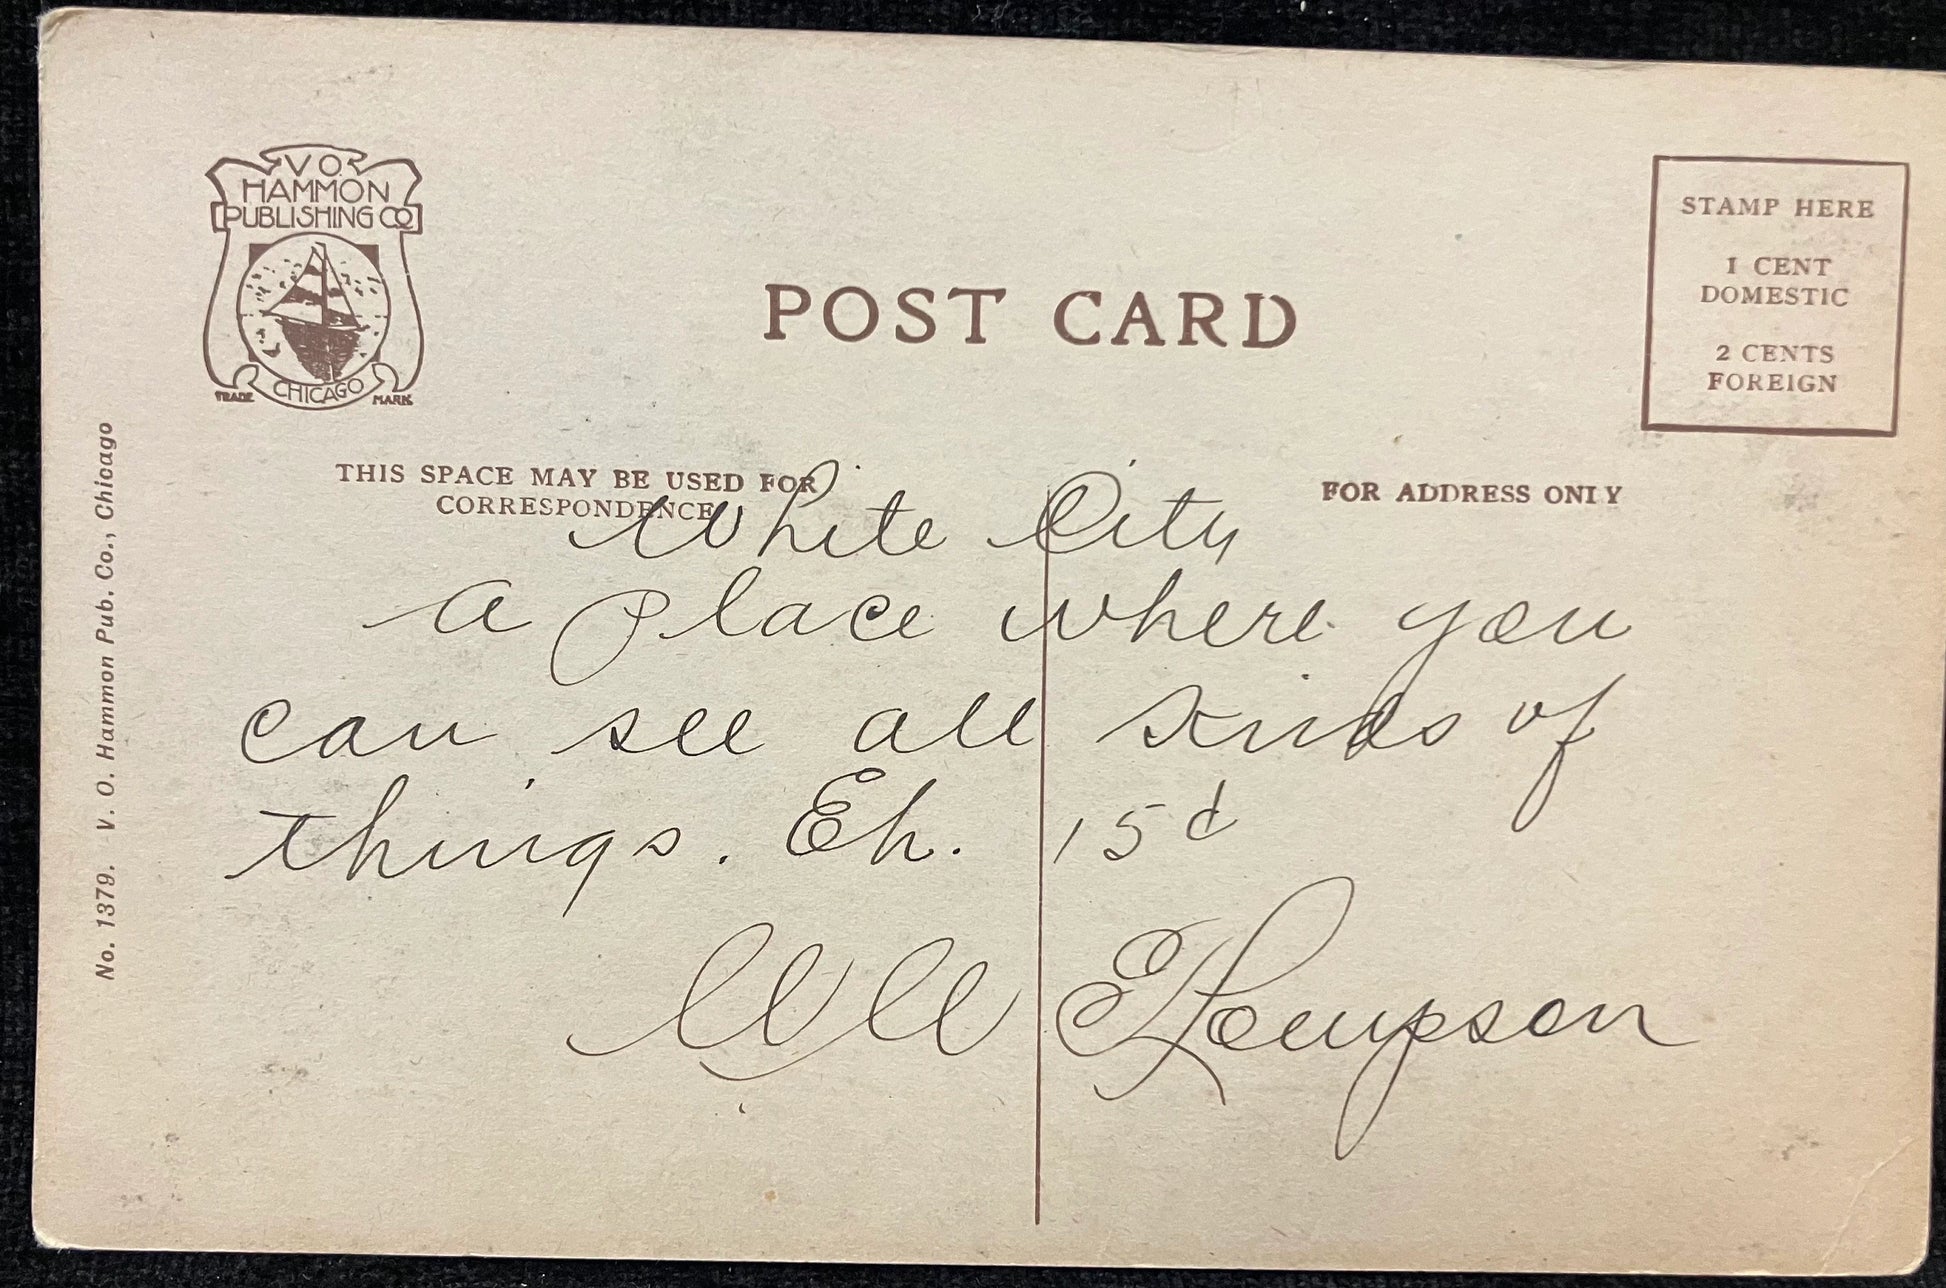 V. O.
HAMMON
PUBLISHING CO.
CHICAGO
TRADE MARK
POST CARD
STAMP HERE
1 CENT
DOMESTIC
2 CENTS
FOREIGN
THIS SPACE MAY BE USED FOR
CORRESPONDENCE
FOR ADDRESS ONLY
White City
a place where you
can see all kinds of
things. Eh. 15¢
No. 1379. V. O. Hammon Pub. Co., Chicago